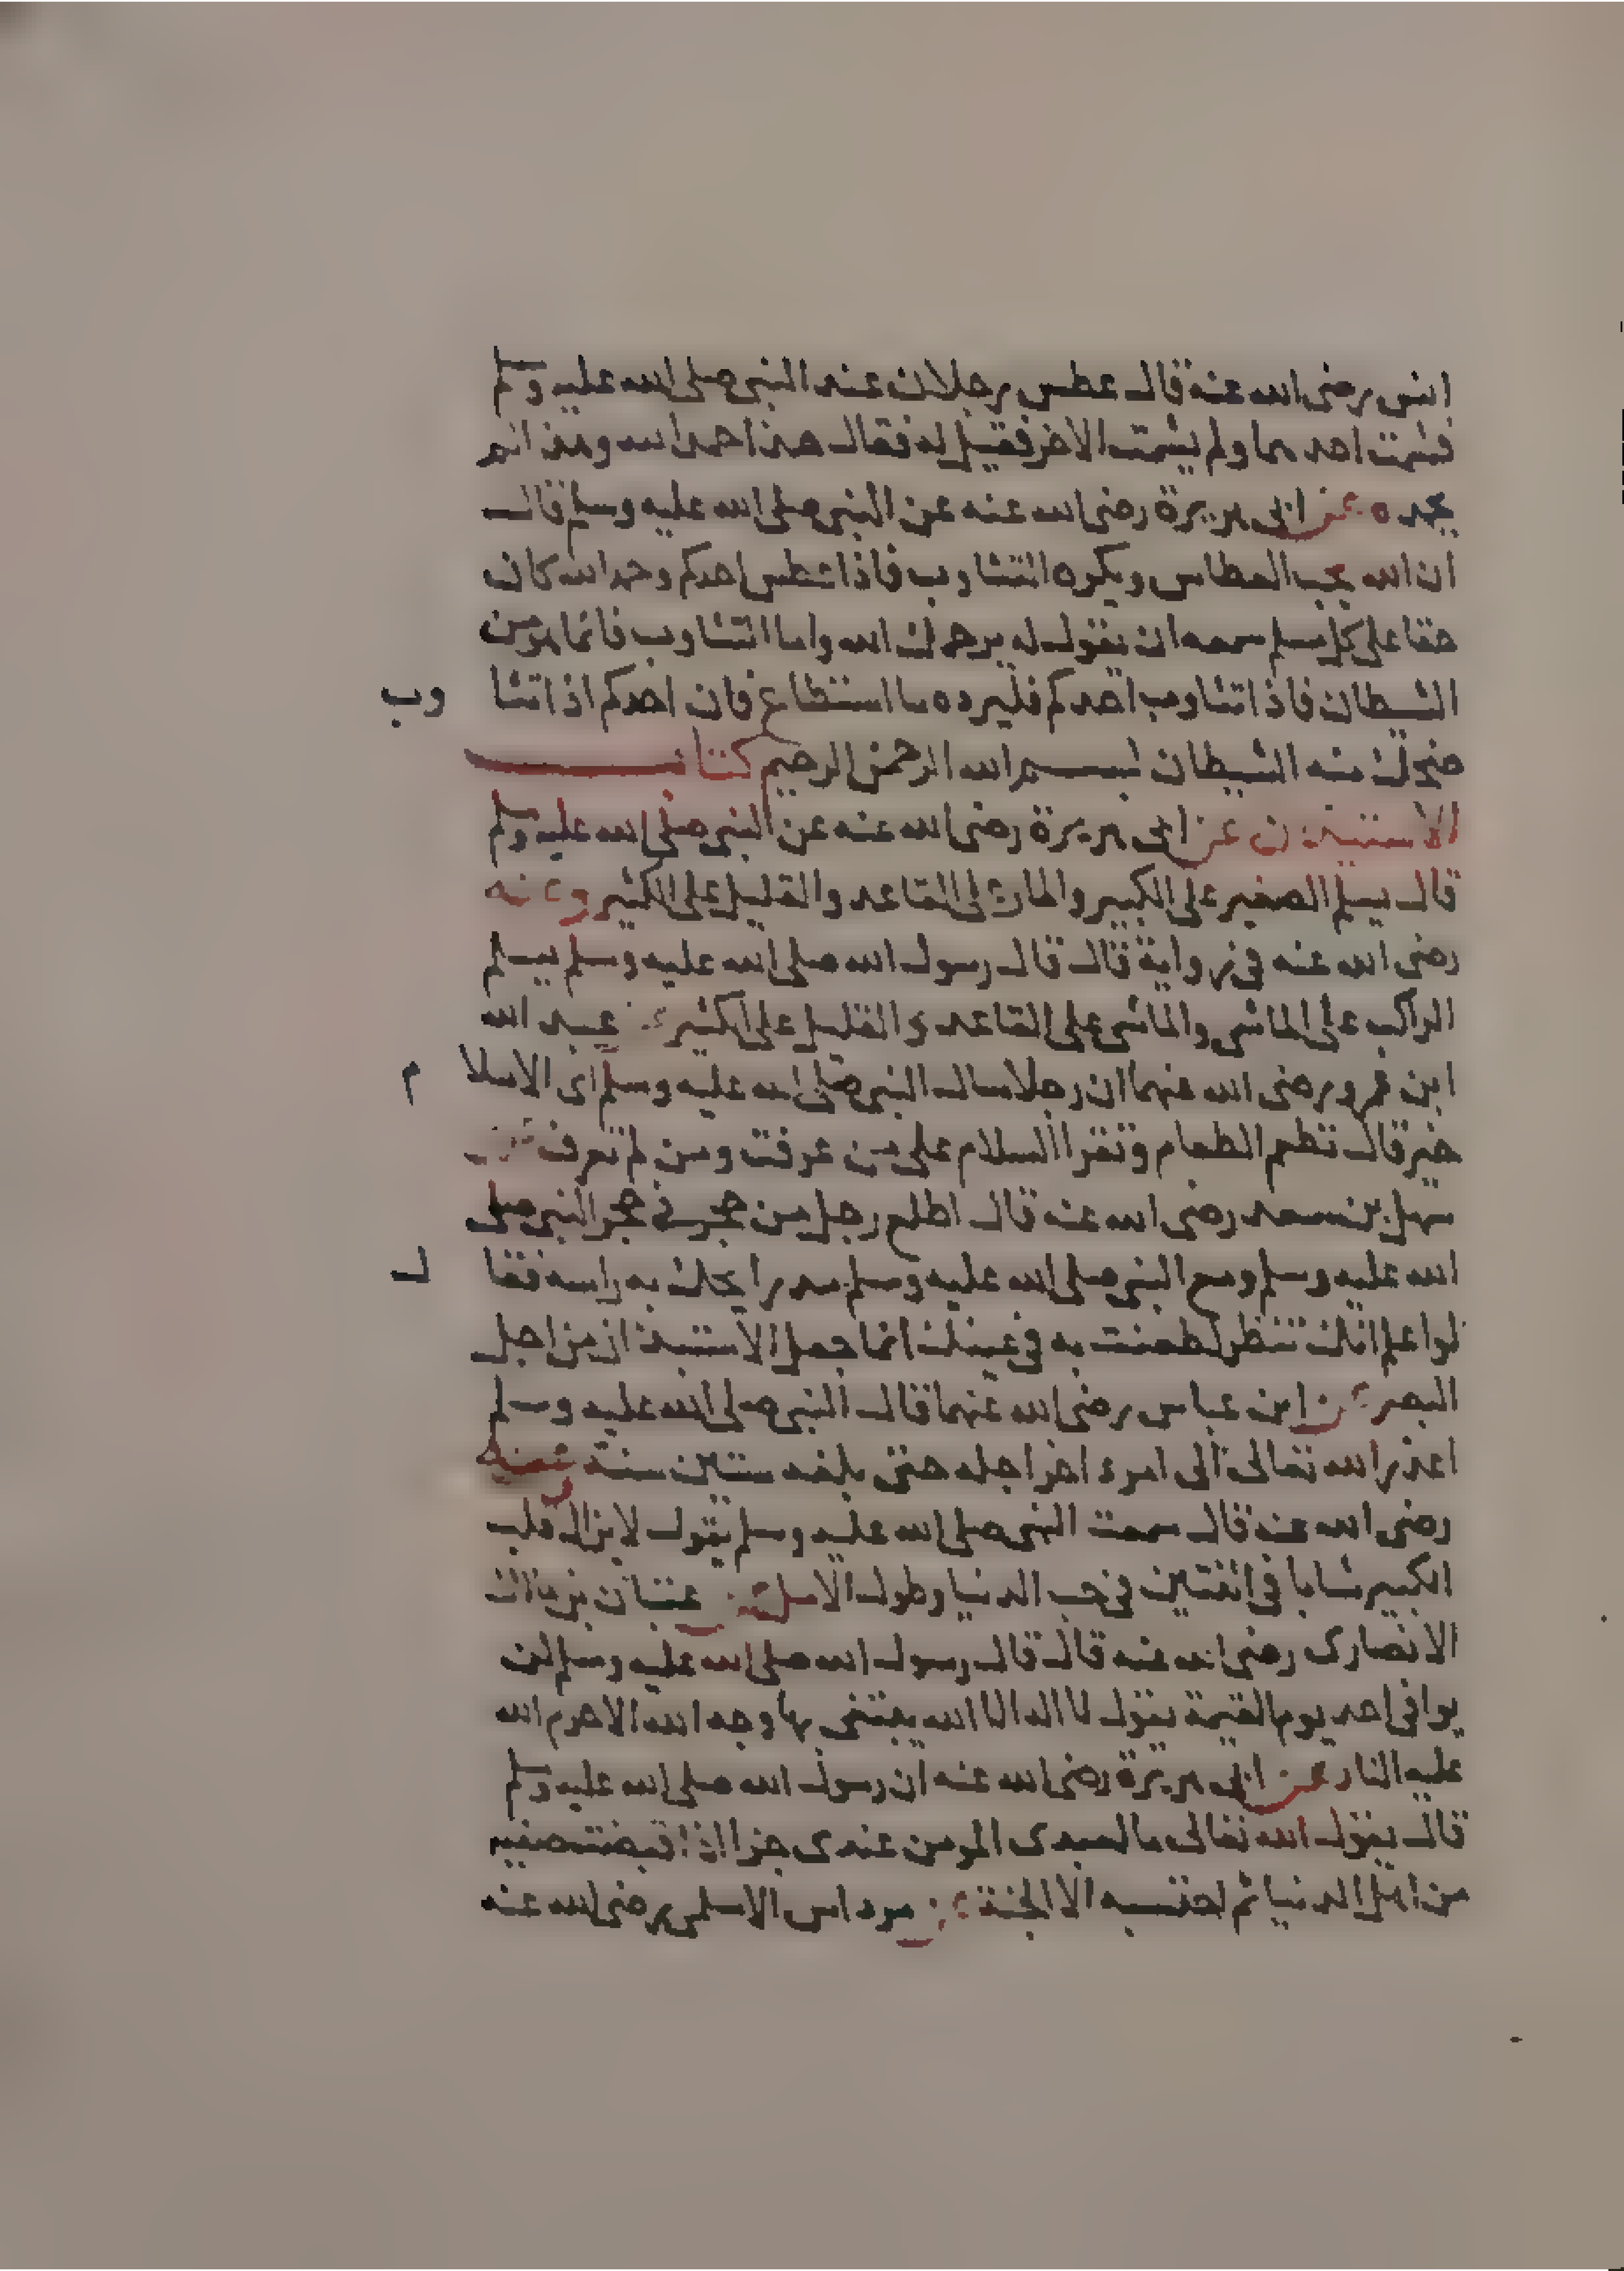 انس رضى الله عنه قال عطس رجلان عند النبى صلى الله عليه وسلم
فشمت احدهما ولم يشمت الاخر فقيل له فقال هذا حمد الله وهذا لم
يحمده عن ابى هريرة رضى الله عنه عن النبى صلى الله عليه وسلم قال
ان الله يحب العطاس ويكره التثاوب فاذا عطس احدكم وحمد الله كان
حقا على كل مسلم سمعه ان يقول له يرحمك الله واما التثاوب فانما هو من
الشيطان فاذا تثاوب احدكم فليرده ما استطاع فان احدكم اذا تثا وب
ضحك منه الشيطان بسم الله الرحمن الرحيم كتاب
الاستيذان عن ابى هريرة رضى الله عنه عن النبى صلى الله عليه وسلم
قال يسلم الصغير على الكبير والمار على القاعد والقليل على الكثير وعنه
رضى الله عنه فى رواية قال قال رسول الله صلى الله عليه وسلم يسلم
الراكب على الماشى والماشى على القاعد والقليل على الكثير عن عبد الله
ابن عمرو رضى الله عنهما ان رجلا سال النبى صلى الله عليه وسلم اى الاسلا م
خير قال تطعم الطعام وتقرا السلام على من عرفت ومن لم تعرف عن
سهل بن سعد رضى الله عنه قال اطلع رجل من جحر فى حجر النبى صلى
الله عليه وسلم ومع النبى صلى الله عليه وسلم مدرا يحك به راسه فقا ل
لو اعلم انك تنظر لطعنت به فى عينك انما جعل الاستيذان من اجل
البصر عن ابن عباس رضى الله عنهما قال النبى صلى الله عليه وسلم
اعذر الله تعالى الى امرء اخر اجله حتى بلغه ستين سنة وعنه
رضى الله عنه قال سمعت النبى صلى الله عليه وسلم يقول لا يزال قلب
الكبير شابا فى اثنتين فى حب الدنيا وطول الامل عن عتبان بن مالك
الانصارى رضى الله عنه قال قال رسول الله صلى الله عليه وسلم لن
يوافى احد يوم القيمة يقول لا اله الا الله يبتغى بها وجه الله الا حرم الله
عليه النار عن ابى هريرة رضى الله عنه ان رسول الله صلى الله عليه وسلم
قال يقول الله تعالى ما لعبدى المومن عندى جزا اذا قبضت صفيه
من اهل الدنيا ثم احتسبه الا الجنة عن مرداس الاسلمى رضى الله عنه